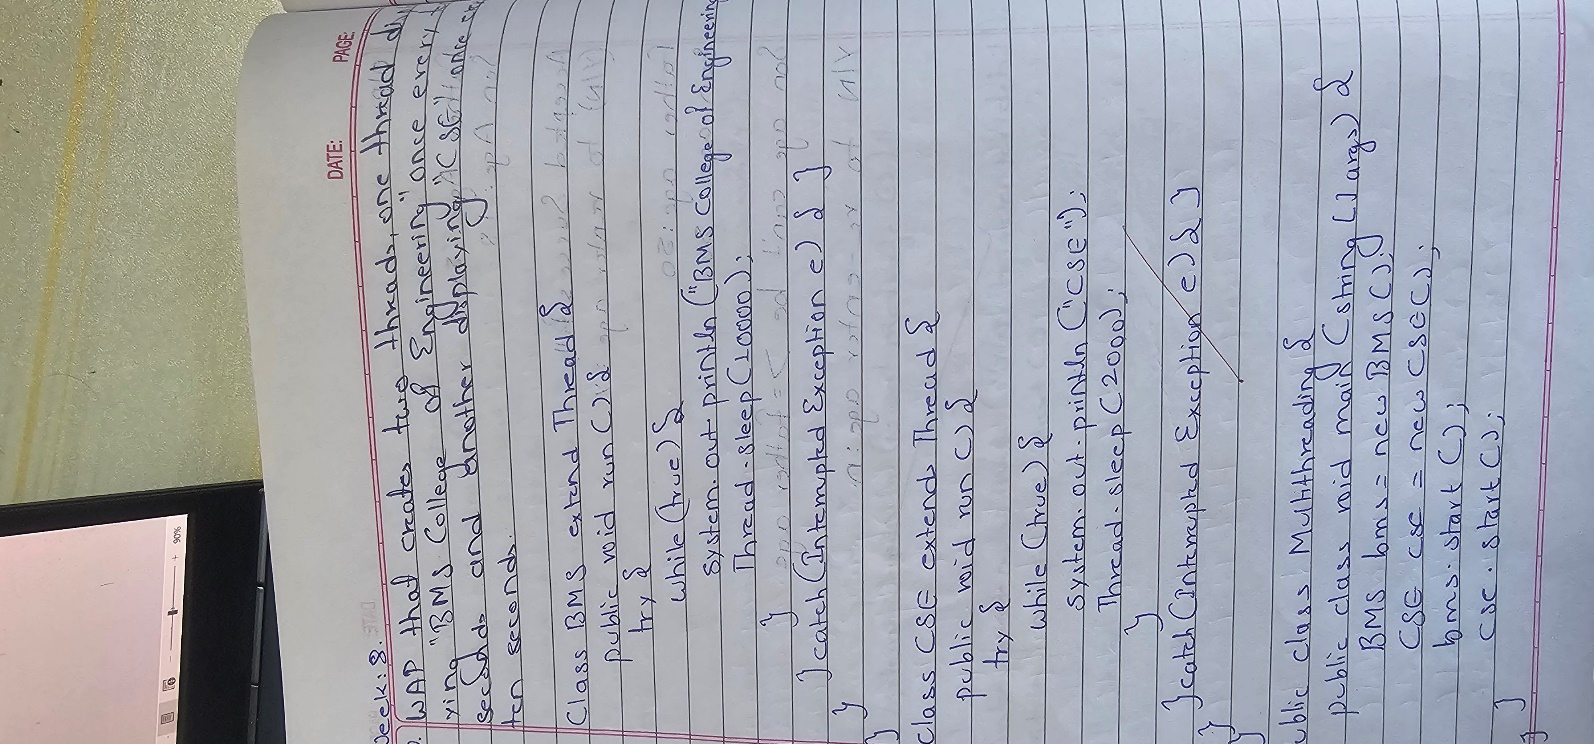 DATE: PAGE:
Week: 8.
WAP that creates two threads, one thread
ying "BMS College of Engineering" once every
seconds and another displaying "CSE" once
ten seconds.
Class BMS extend Thread {
public void run () {
try {
while (true) {
System.out.println ("BMS College of Engineering
Thread.sleep (10000);
}
} catch (Interrupted Exception e) { }
}
}
Class CSE extends Thread {
public void run () {
try {
while (true) {
System.out.println ("CSE");
Thread.sleep (2000);
}
} catch (Interrupted Exception e) { }
}
}
ublic class Multithreading {
public class void main (string [] args) {
BMS bms = new BMS ();
CSE cse = new CSE ();
bms.start ();
cse.start ();
}
}
90%